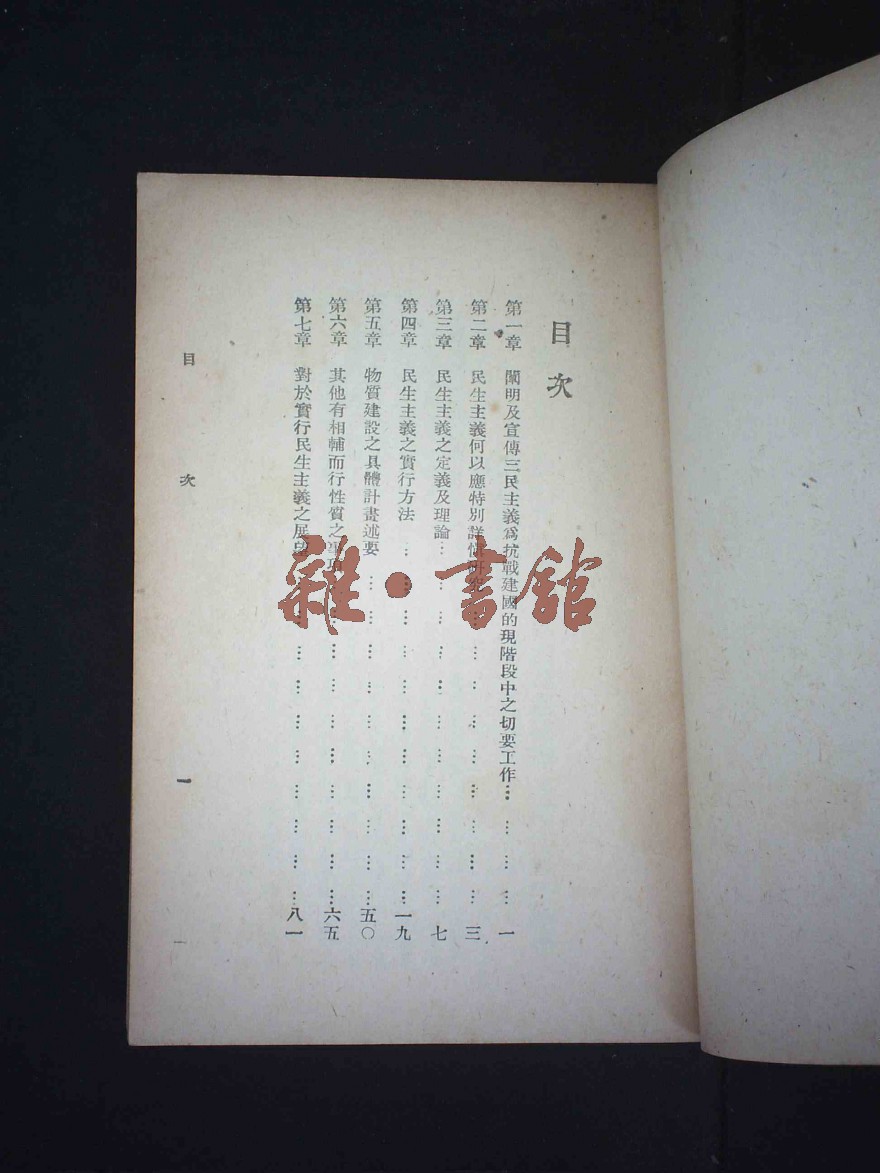 目次
第一章 闡明及宣傳三民主義爲抗戰建國的現階段中之切要工作 一
第二章 民生主義何以應特別詳慎研究 三
第三章 民生主義之定義及理論 七
第四章 民生主義之實行方法 一九
第五章 物質建設之具體計畫述要 五〇
第六章 其他有相輔而行性質之事項 六五
第七章 對於實行民生主義之展望 八一
目次
一
雜·書館